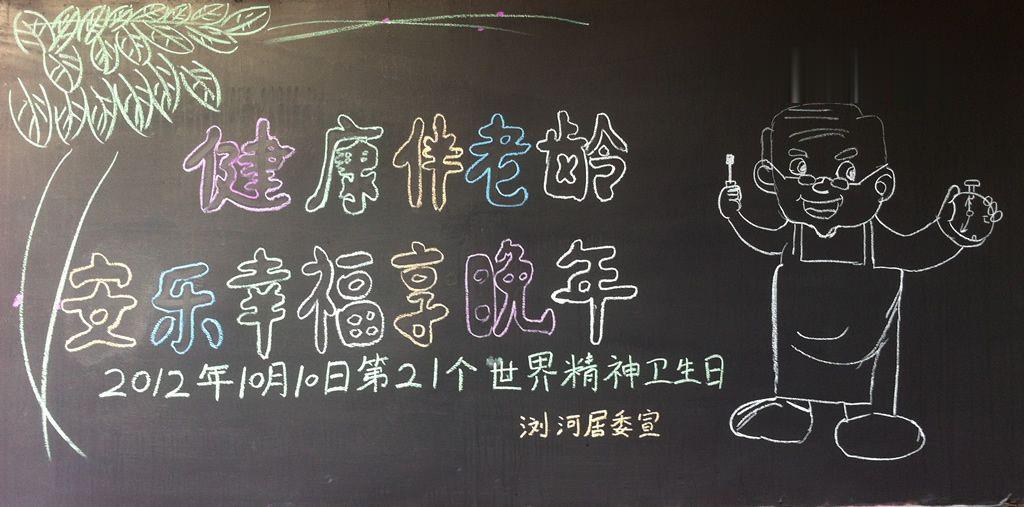 健康伴老龄
安乐幸福享晚年
2012年10月10日第21个世界精神卫生日
浏河居委宣